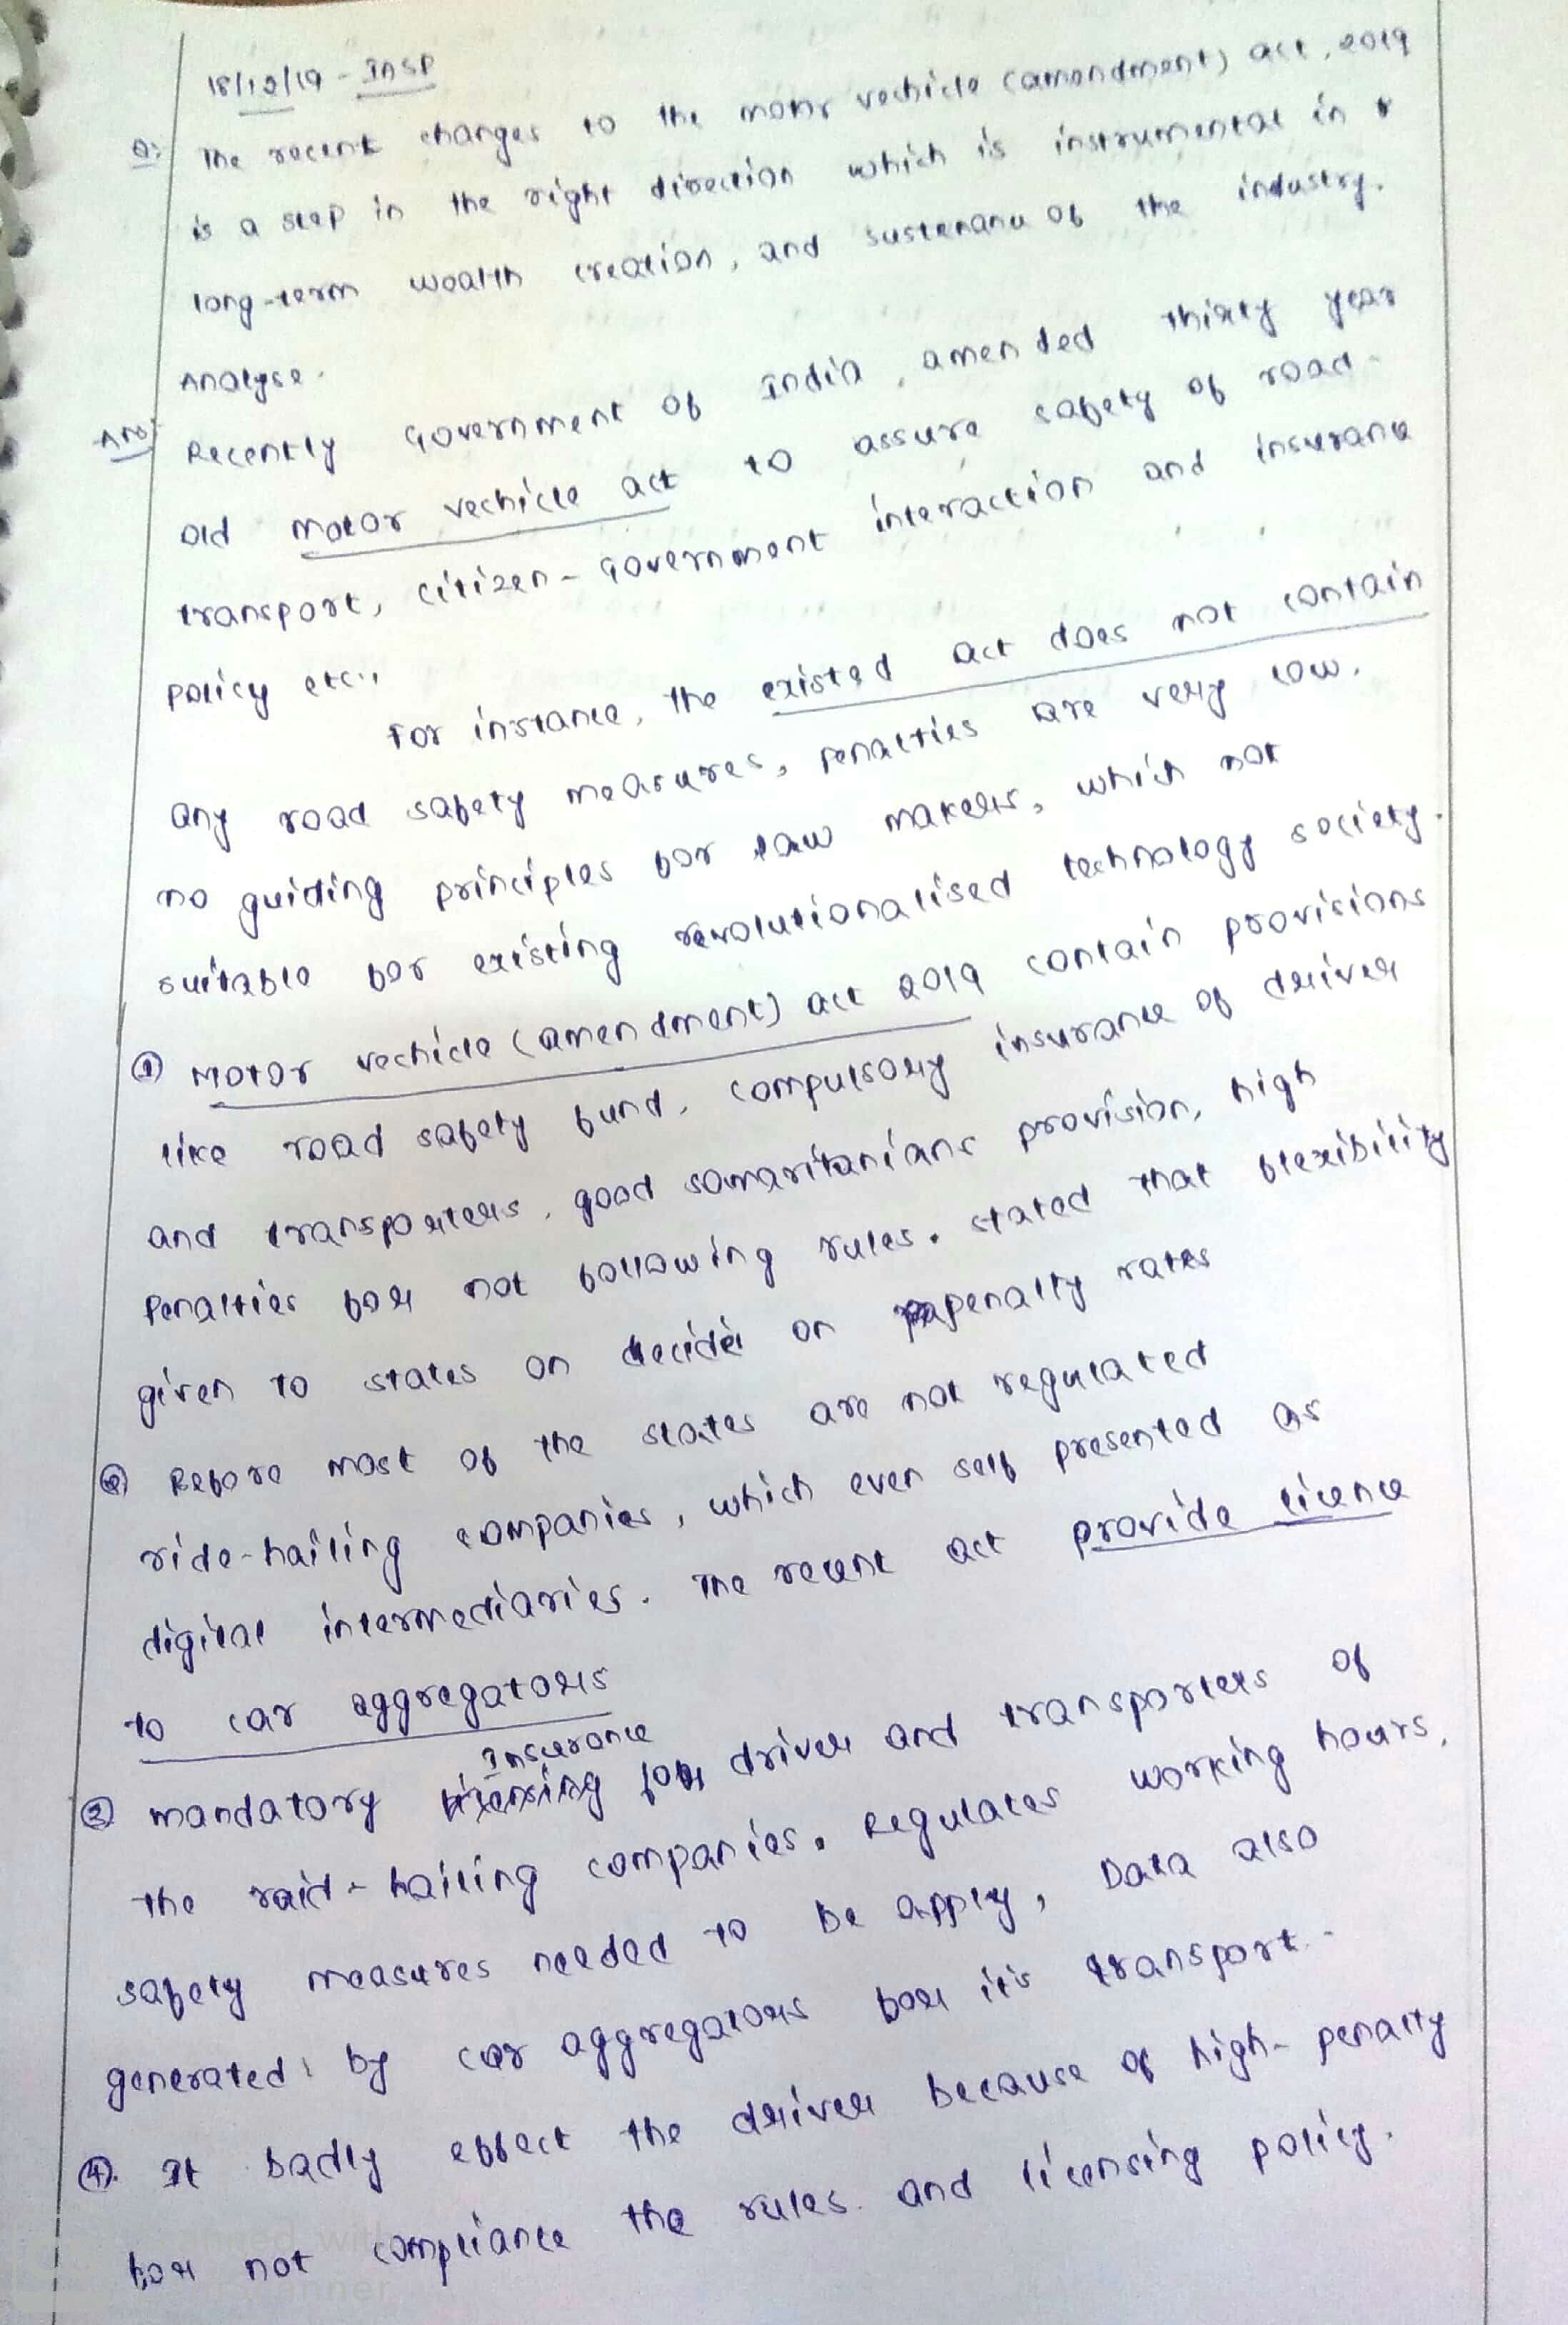 18/12/19 - INSP
Q: The recent changes to the motor vechicle (amendment) act, 2019
is a step in the right direction which is instrumental in
long-term wealth creation, and sustenance of the industry.
Analyse.
Ans: Recently Government of India, amended thirty year
old motor vechicle act to assure safety of road-
transport, citizen-Government interaction and insurance
policy etc.,
For instance, the existed act does not contain
any road safety measures, penalties are very low.
no guiding principles for law makers, which not
suitable for existing revolutionalised technology society.
① Motor vechicle (amendment) act 2019 contain provisions
like road safety fund, compulsory insurance of driver
and transporters, good samaritanians provision, high
Penalties for not following rules. stated that flexibility
given to states on decider on penalty rates
② Before most of the states are not regulated
ride-hailing companies, which even self presented as
digital intermediaries. The recent act provide licence
to car aggregators
③ mandatory Insurance for driver and transporters of
the raid-hailing companies. Regulates working hours,
safety measures needed to be apply, Data also
generated by car aggregators for it's transport.-
④. It badly effect the driver because of high-penalty
for not compliance the rules and licensing policy.